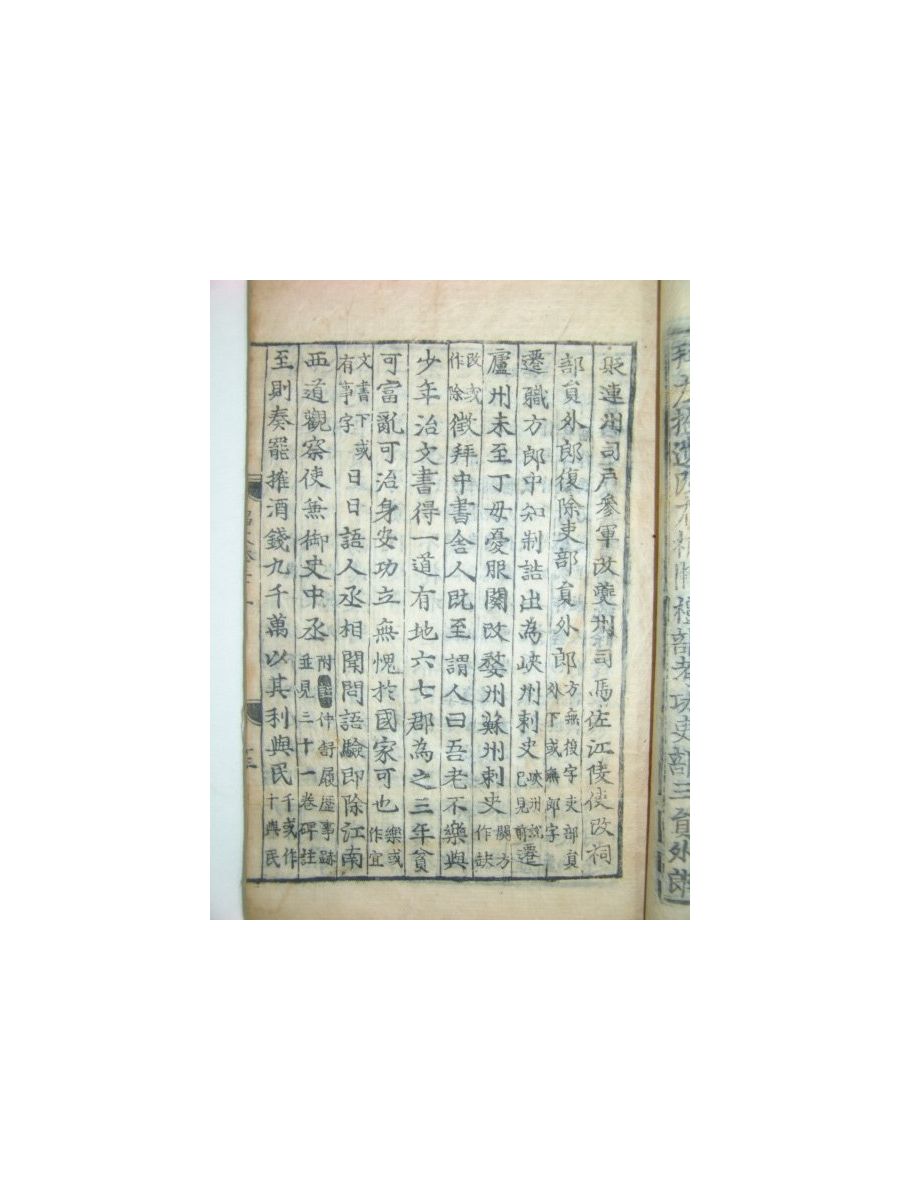 拜左拾遺改右補闕禮部考功吏部三員外郎
貶連州司戶參軍改夔州司馬佐江陵使改祠
部員外郎復除吏部員外郎方無復字吏部員外下或無郎字
遷職方郎中知制誥出為峽州刺史峽州說已見前遷
廬州未至丁母憂服闋改婺州蘇州刺史闋方作缺
改或作除徵拜中書舍人旣至謂人曰吾老不樂與
少年治文書得一道有地六七郡為之三年貧
可富亂可治身安功立無愧於國家可也樂或作宜
文書下或有事字日日語人丞相聞問語驗即除江南
西道觀察使兼御史中丞附註仲舒履歷事跡並見三十一卷碑註
至則奏罷搉酒錢九千萬以其利與民千或作十與民